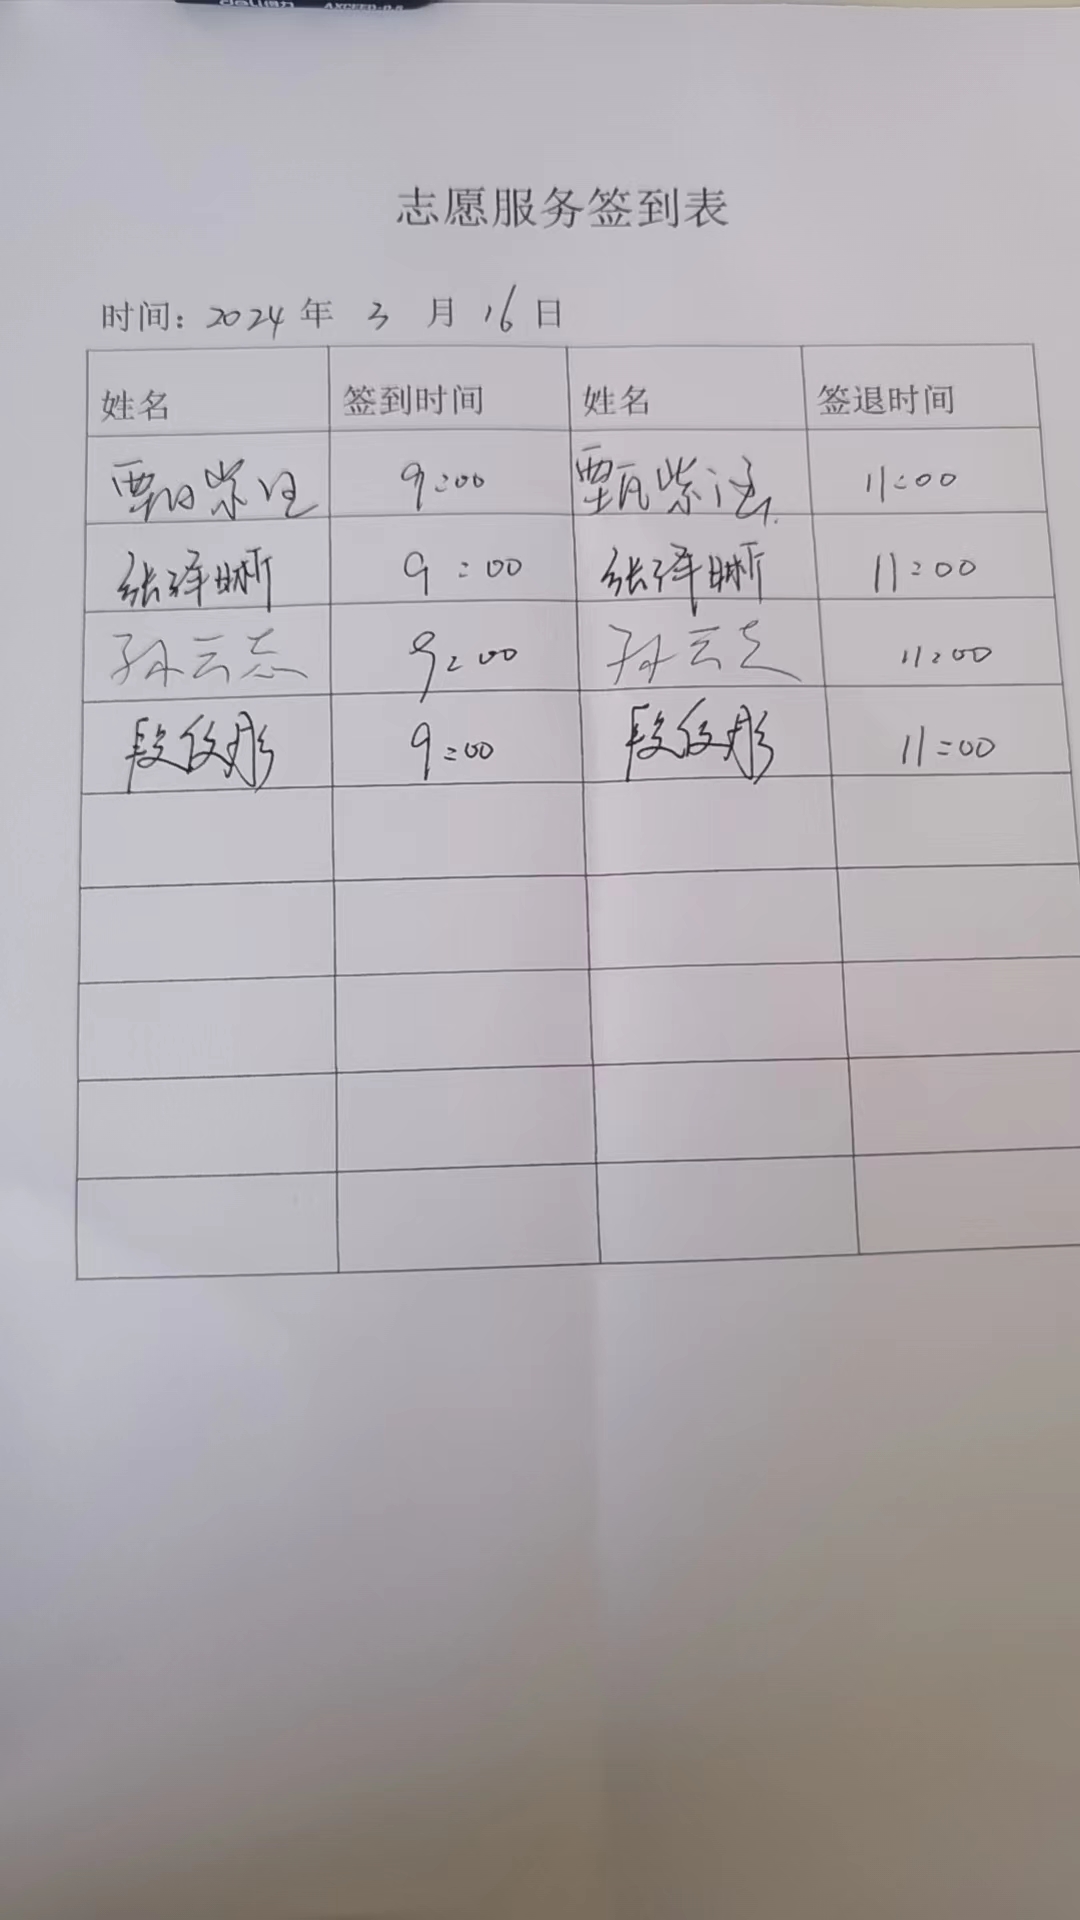 deli得力
志愿服务签到表
时间：2024年 3 月 16 日
姓名 签到时间 姓名 签退时间
甄紫 9:00 甄紫 11:00
张泽 9:00 张泽 11:00
孙云志 9:00 孙云志 11:00
段俊彤 9:00 段俊彤 11:00